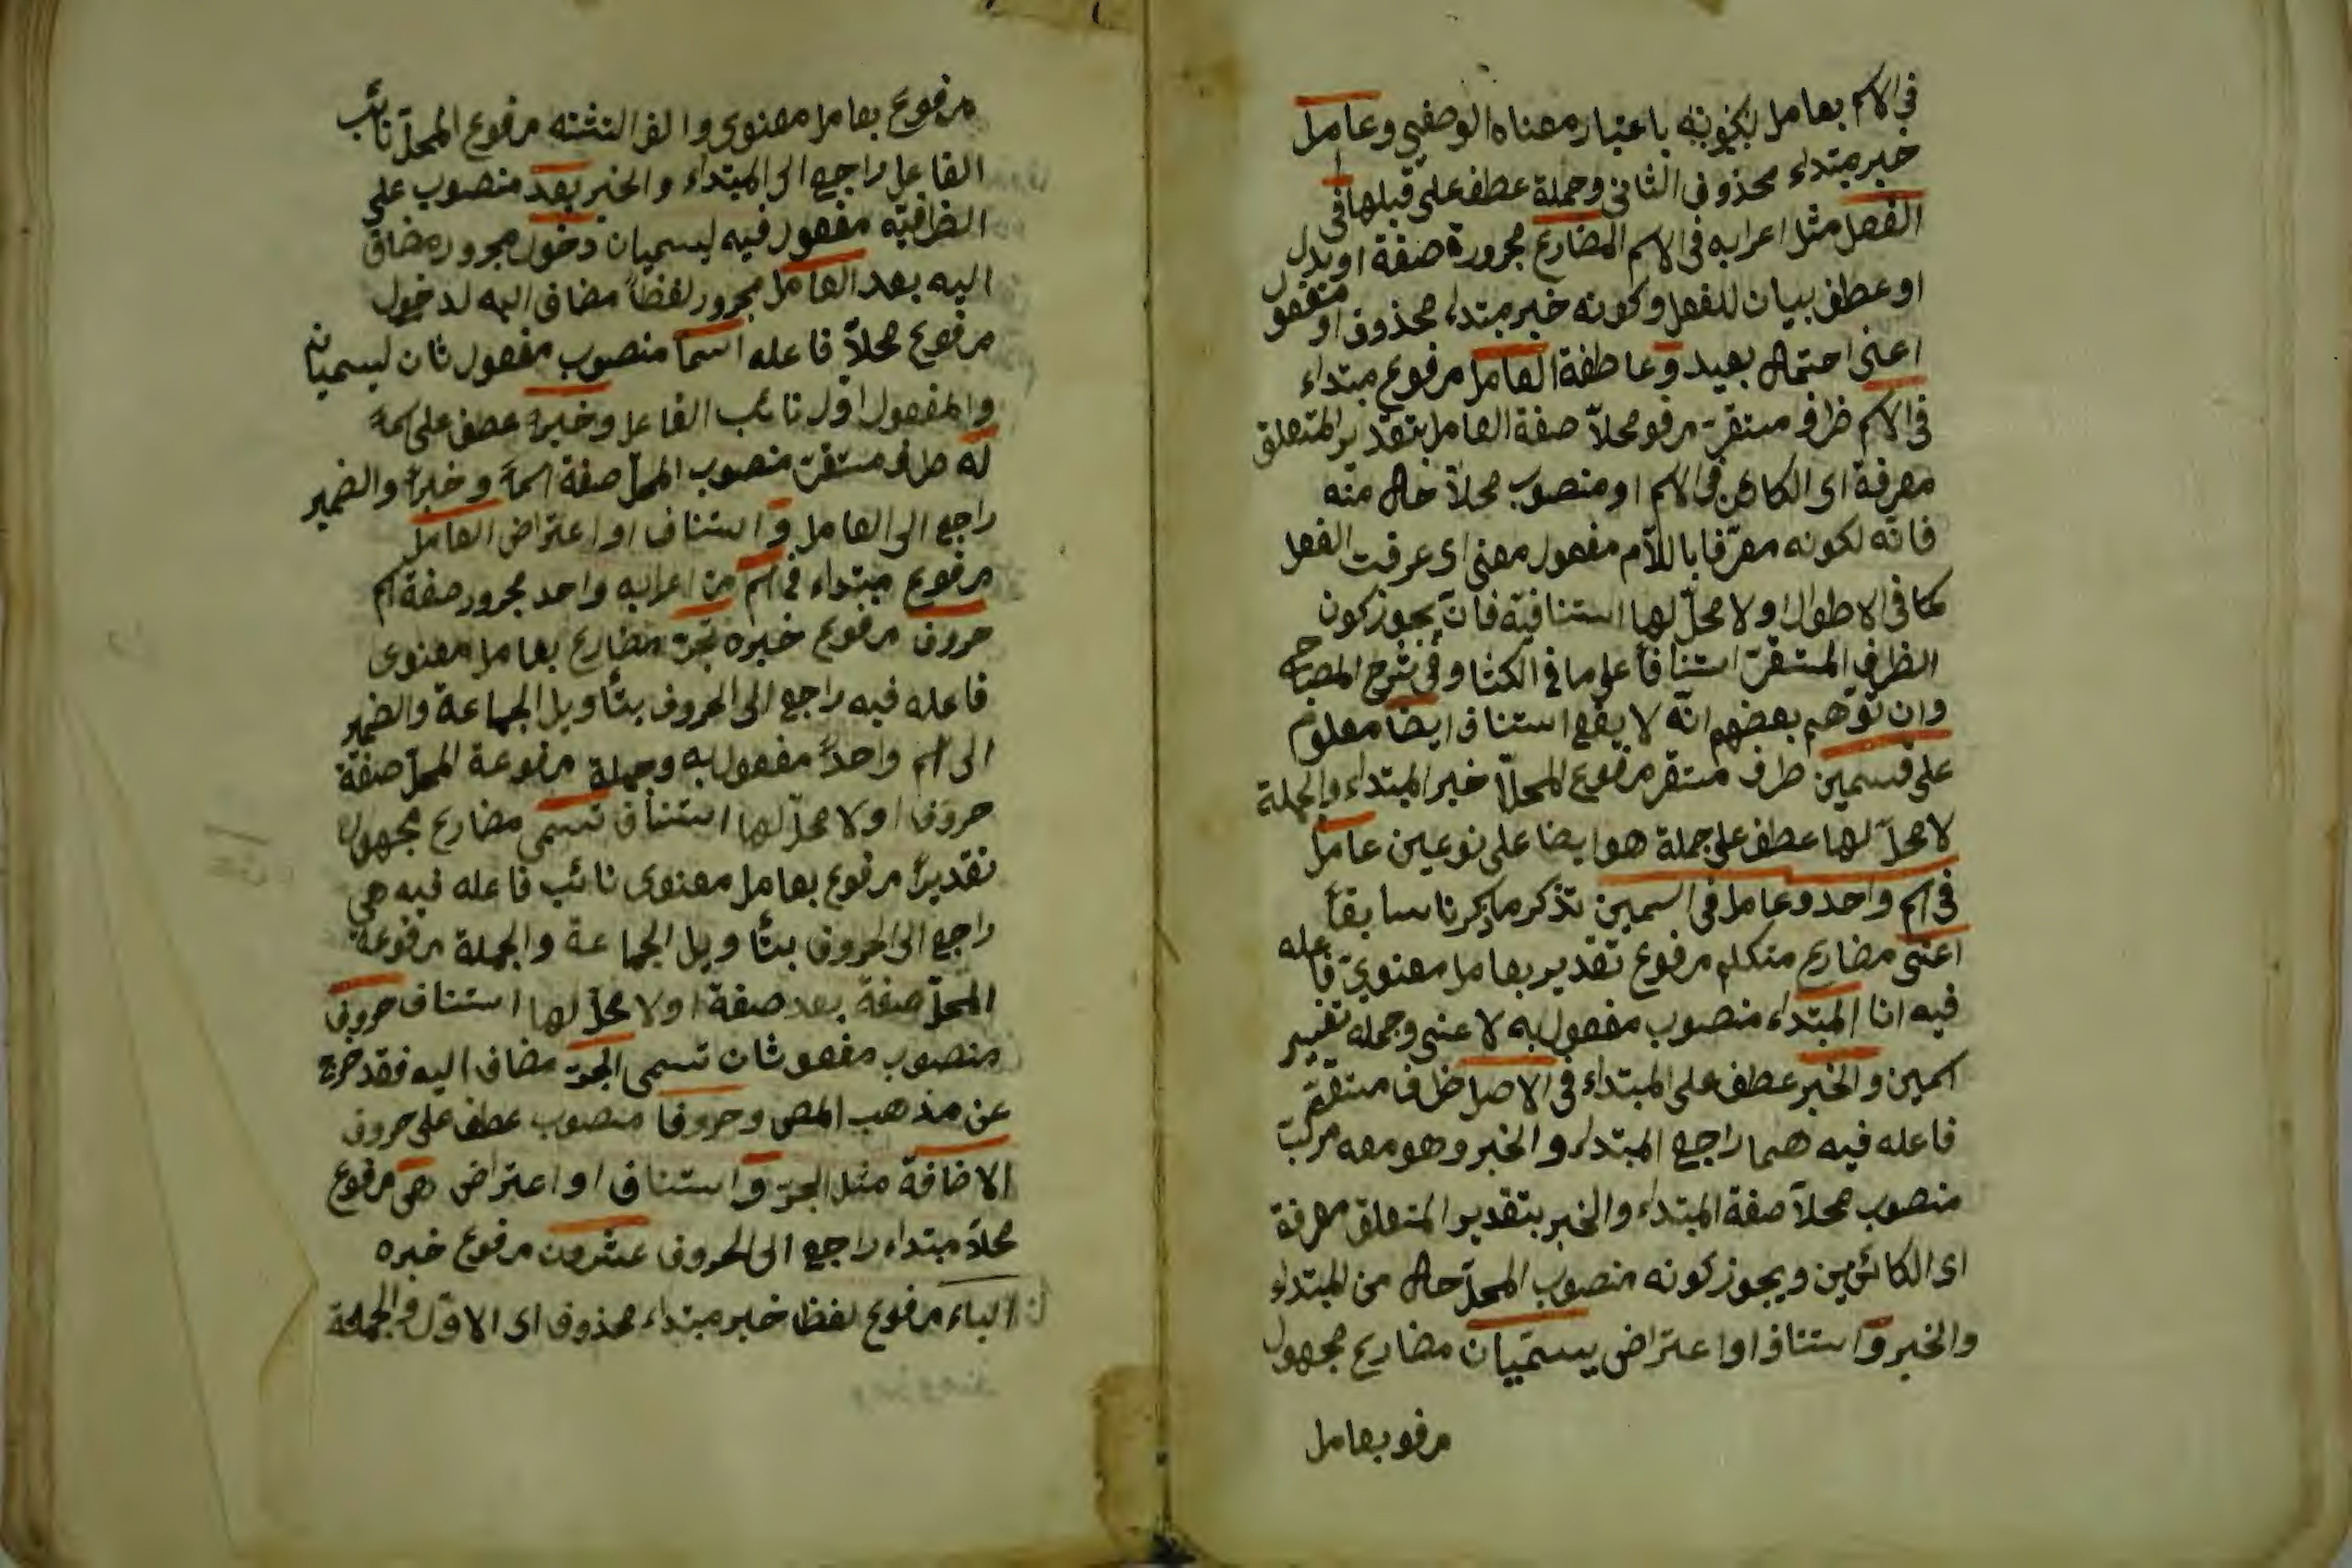 في الاسم بعامل لكونه باعتبار معناه الوصفي وعامل
خبر مبتداء محذوف الثاني وجملة عطف على قبلها في
الفعل مثل اعرابه في الاسم المضارع مجرورة صفة او بدل
او عطف بيان للفعل وكونه خبر مبتداء محذوف او مفعول
اعنى احتمال بعيد وعاطفة العامل مرفوع مبتداء
في الاسم ظرف مستقر مرفو محلاً صفة العامل بتقدير المتعلق
معرفة اى الكائن في الاسم او منصوب محلاً حال منه
فانه لكونه معرّفا باللاّم مفعول معنى اى عرفت الفعل
كما في الاطول او لا محلّ لها استنافيّة فانّ يجوز كون
الظرف المستقرّ استنافاً على ما في الكشا وفي شرح المصباح
وان توهم بعضهم انّه لا يقع استناف ايضا معلوم
على قسمين ظرف مستقر مرفوع المحلّ خبر المبتداء والجملة
لا محلّ لها عطف على جملة هو ايضا على نوعين عامل
في اسم واحد وعامل في اسمين تذكر ما ذكرنا سابقاً
اعنى مضارع متكلم مرفوع تقدير بعامل معنوىّ فاعله
فيه انا المبتداء منصوب مفعول به لاعنى وجمله تفسير
اسمين والخبر عطف على المبتداء في الاصل ظرف مستقرّ
فاعله فيه هما راجع المبتداء والخبر وهو معه مركبّ
منصوب محلاً صفة المبتداء والخبر بتقدير المتعلق معرفة
اى الكائنين ويجوز كونه منصوب المحلّ حال من المبتداء
والخبر و استناف او اعتراض يسمّيان مضارع مجهول
مرفو بعامل
مرفوع بعامل معنوى والف التثنه مرفوع المحلّ نائب
الفاعل راجع الى المبتداء والخبر بعد منصوب على
الظرافيّه مفعول فيه ليسميان دخول مجرور مضاف
اليه بعد العامل مجرور لفظاً مضاف اليه لدخول
مرفوع محلاً فاعله اسما منصوب مفعول ثان ليسميان
والمفعول اوّل نائب الفاعل وخبراً عطف على اسماً
له ظرف مستقرّ منصوب المحلّ صفة اسماً وخبراً والضمير
راجع الى العامل و استناف او اعتراض العامل
مرفوع مبتداء في اسم من اعرابه واحد مجرور صفة اسم
حروف مرفوع خبره تجرّ مضارع بعامل معنوى
فاعله فيه راجع الى الحروف بتأويل الجماعة والضمير
الى اسم واحداً مفعول به وجملة مرفوعة المحلّ صفة
حروف او لا محلّ لها استناف تسمى مضارع مجهول
تقديراً مرفوع بعامل معنوى نائب فاعله فيه هي
راجع الى الحروف بتأويل الجماعة والجملة مرفوعة
المحلّ صفة بعد صفة او لا محلّ لها استناف حروف
منصوب مفعو ثان تسمى الجرّ مضاف اليه فقد خرج
عن مذهب المص وحروفا منصوب عطف على حروف
الاضافة مثل الجرّ و استناف او اعتراض هى مرفوع
محلاً مبتداء راجع الى الحروف عشرون مرفوع خبره
الباء مرفوع لفظا خبر مبتداء محذوف اى الاوّل والجملة